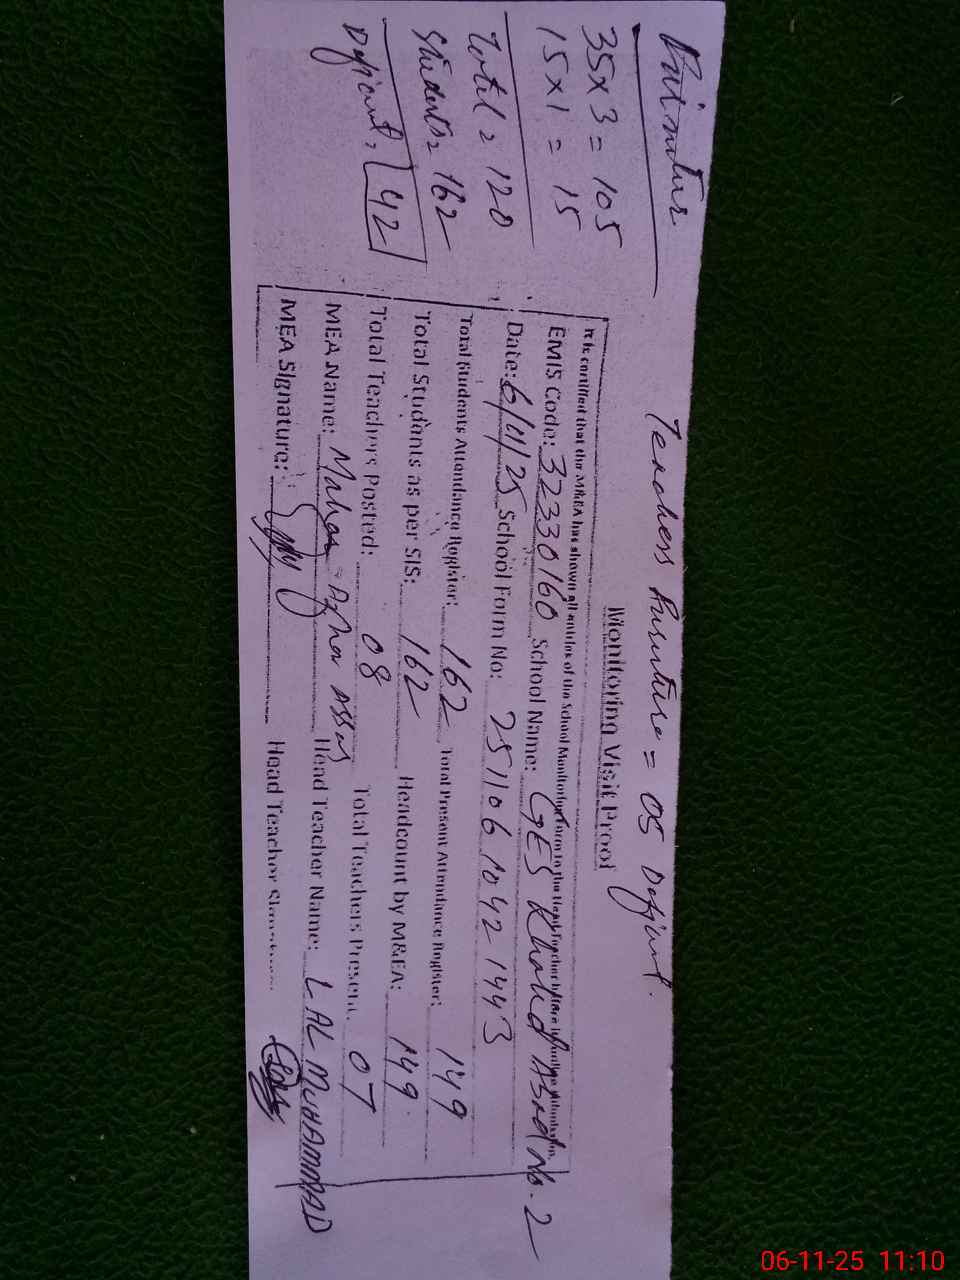 35 x 3 = 105
15 x 1 = 15
Total = 120
Students = 162
42
Teachers = 05
Monitoring Visit Proof
It is certified that the M&EA has shown all entries of the School Monitoring Form to the Head Teacher before
EMIS Code: 32330160 School Name: GES No. 2
Date: 6/11/25 School Form No: 2511061042 1443
Total Students Attendance Register: 162 Total Present Attendance Register: 149
Total Students as per SIS: 162 Headcount by M&EA: 149
Total Teachers Posted: 08 Total Teachers Present: 07
MEA Name: Head Teacher Name: LAL MUHAMMAD
MEA Signature: Head Teacher
06-11-25 11:10